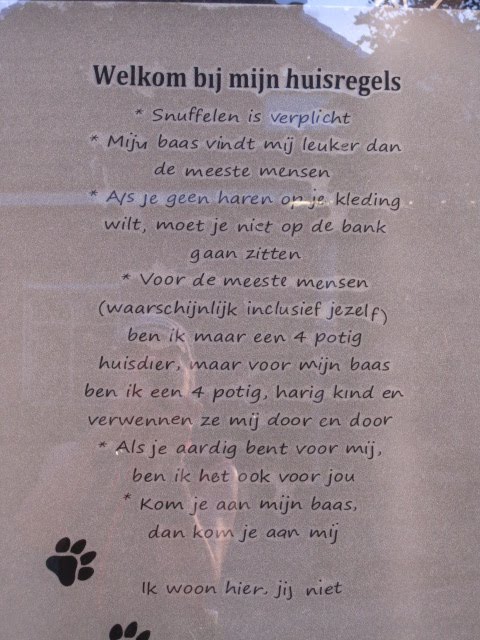 Welkom bij mijn huisregels
* Snuffelen is verplicht
* Mijn baas vindt mij leuker dan
de meeste mensen
* Als je geen haren op je kleding
wilt, moet je niet op de bank
gaan zitten
* Voor de meeste mensen
(waarschijnlijk inclusief jezelf)
ben ik maar een 4 potig
huisdier, maar voor mijn baas
ben ik een 4 potig, harig kind en
verwennen ze mij door en door
* Als je aardig bent voor mij,
ben ik het ook voor jou
* Kom je aan mijn baas,
dan kom je aan mij
Ik woon hier, jij niet